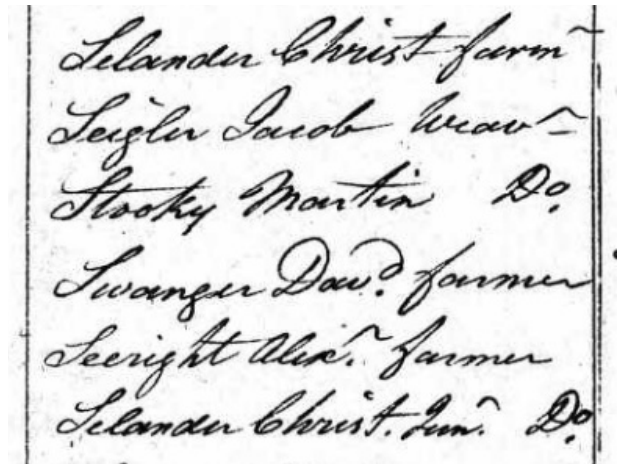 Selander Christ farmr
Seigler Jacob Weavr
Stooky Martin Do
Swanger Davd. farmer
Seeright Alexr. farmer
Selander Christ. Junr. Do